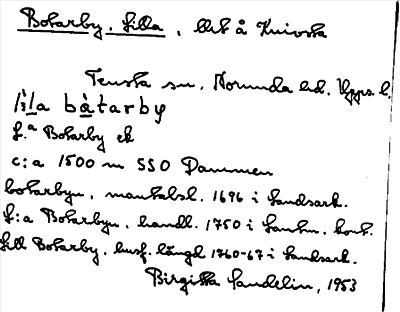 Botarby, Lilla, litt å Knivsta
Tensta sn, Norunda hd, Upps. l.
lı̀la bàtarby
L:a Botarby ek
c:a 1500 m SSO Dammen
botarbyn, mantalsl. 1696 i Landsark.
L:a Botarbyn, handl. 1750 i Lantm. kont.
Lill Botarby, husf. längd 1760-67 i Landsark.
Birgitta Sandelin, 1953